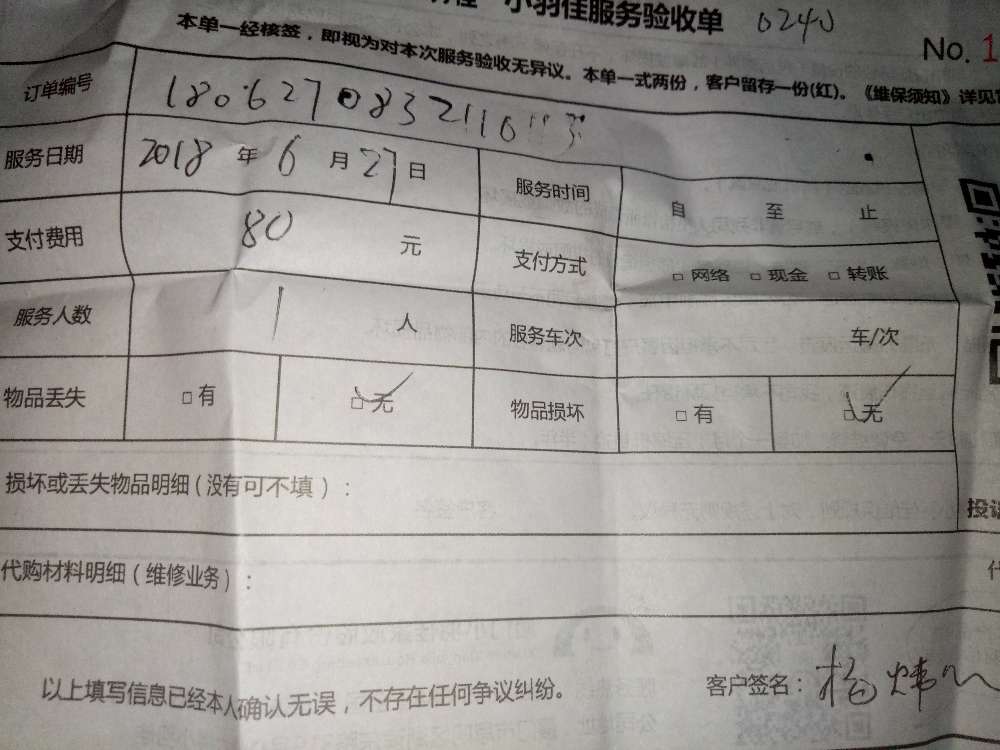 小羽佳服务验收单 0240
No. 1
本单一经核签，即视为对本次服务验收无异议。本单一式两份，客户留存一份(红)。《维保须知》详见
订单编号 180627083211011
服务日期 2018 年 6 月 27 日 服务时间 自 至 止
支付费用 80 元 支付方式 □ 网络 □ 现金 □ 转账
服务人数 1 人 服务车次 车/次
物品丢失 □ 有 □ 无 物品损坏 □ 有 □ 无
损坏或丢失物品明细(没有可不填)：
投诉
代购材料明细(维修业务)：
以上填写信息已经本人确认无误，不存在任何争议纠纷。 客户签名：杨炜